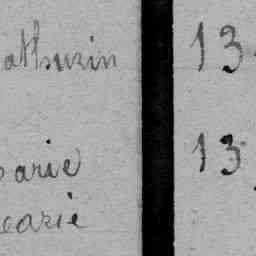 athurin 13
arie 13
arie